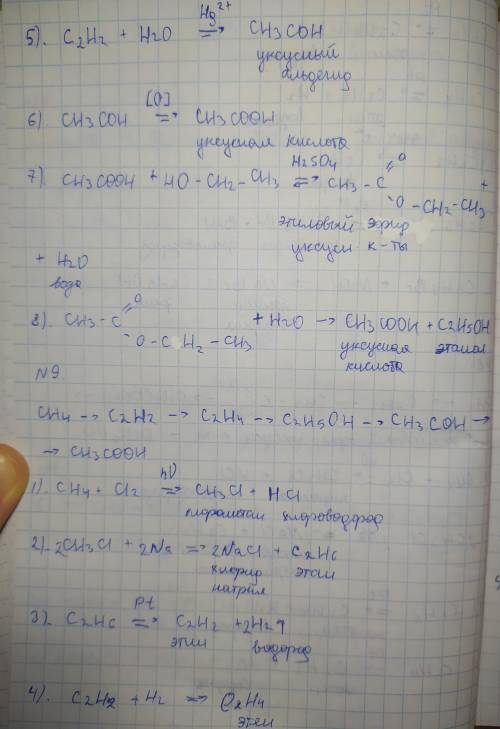 5). C2H2 + H2O Hg2+ ⇒ CH3COH
уксусный
альдегид
6). CH3COH [O] ⇒ CH3COOH
уксусная кислота
7) CH3COOH + HO - CH2 - CH3 H2SO4 ⇒ CH3 - C = O
O - CH2 - CH3 +
этиловый эфир
уксусн к-ты
+ H2O
вода
8). CH3 - C = O
- O - CH2 - CH3 + H2O → CH3COOH + C2H5OH
уксусная этанол
кислота
N9.
CH4 → C2H2 → C2H4 → C2H5OH → CH3COH →
→ CH3COOH
1) CH4 + Cl2 hν ⇒ CH3Cl + HCl
хлорметан хлороводород
2). 2CH3Cl + 2Na ⇒ 2NaCl + C2H6
хлорид этан
натрия
3). C2H6 Pt ⇒ C2H2 + 2H2↑
этин водород
4). C2H2 + H2 ⇒ C2H4
этен